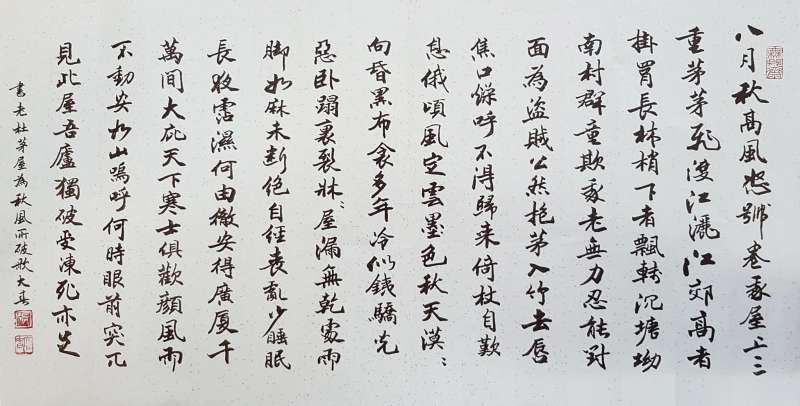 八月秋高風怒號卷我屋上三
重茅茅飛渡江灑江郊高者
掛罥長林梢下者飄轉沉塘坳
南村群童欺我老無力忍能對
面為盜賊公然抱茅入竹去唇
焦口燥呼不得歸來倚杖自歎
息俄頃風定雲墨色秋天漠〻
向昏黑布衾多年冷似鐵驕兒
惡臥蹋裏裂牀〻屋漏無乾處雨
腳如麻未斷絕自經喪亂少睡眠
長夜霑濕何由徹安得廣廈千
萬間大庇天下寒士俱歡顏風雨
不動安如山嗚呼何時眼前突兀
見此屋吾廬獨破受凍死亦足
書老杜茅屋為秋風所破歌大